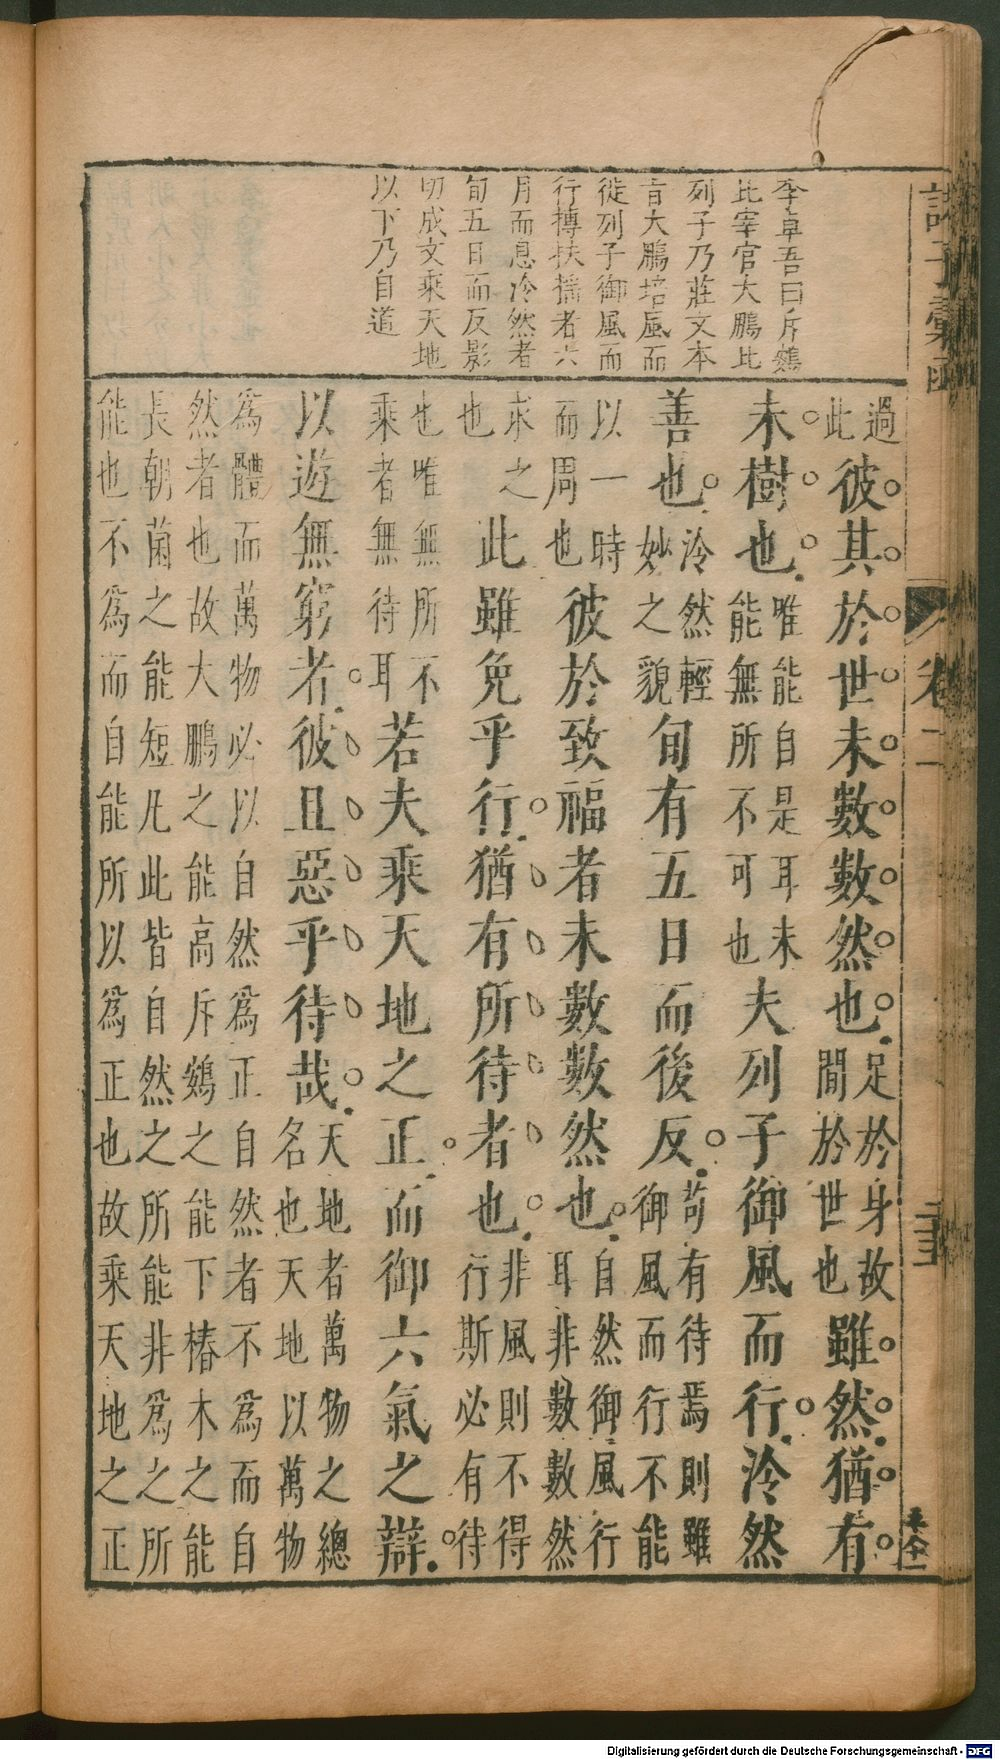 諸子彙函
卷二
李卓吾曰斥鷃
比宰官大鵬比
列子乃莊文本
旨大鵬培風而
徙列子御風而
行搏扶搖者六
月而息冷然者
旬五日而反影
切成文乘天地
以下乃自道
過此彼其於世未數數然也足於身故間於世也雖然猶有
未樹也唯能自是耳未能無所不可也夫列子御風而行泠然
善也泠然輕妙之貌旬有五日而後反苟有待焉則雖御風而行不能
以一時而周也彼於致福者未數數然也自然御風行耳非數數然
求之也此雖免乎行猶有所待者也非風則不得行斯必有待
也唯無所不乘者無待耳若夫乘天地之正而御六氣之辯
以遊無窮者彼且惡乎待哉天地者萬物之總名也天地以萬物
爲體而萬物必以自然爲正自然者不爲而自
然者也故大鵬之能高斥鷃之能下椿木之能
長朝菌之能短凡此皆自然之所能非爲之所
能也不爲而自能所以爲正也故乘天地之正
Digitalisierung gefördert durch die Deutsche Forschungsgemeinschaft - DFG